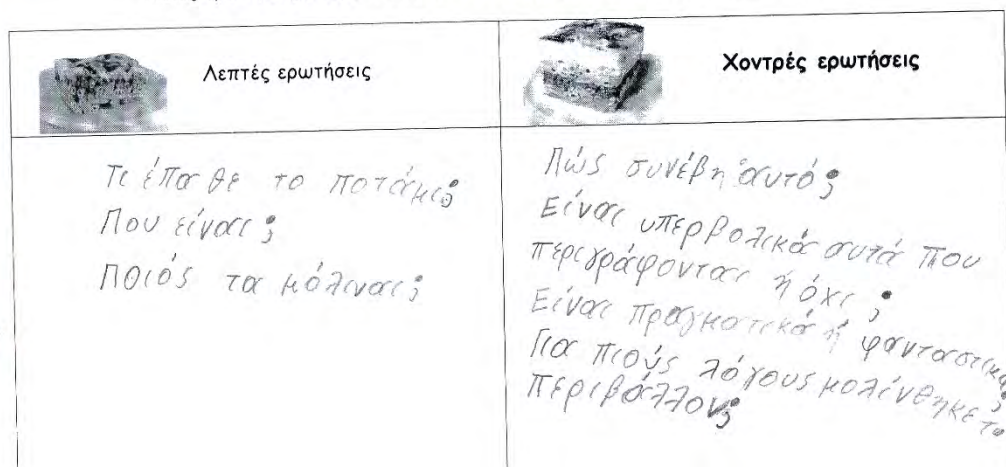 Λεπτές ερωτήσεις
Χοντρές ερωτήσεις
Τι έπαθε το ποτάμι;
Που είναι;
Ποιός τα μόλιναι;
Πώς συνέβη αυτό;
Είναι υπερβολικά αυτά που
περιγράφονται ή όχι;
Είναι πραγματικά ή φανταστικά;
Για πιούς λόγους μολένθηκε το
περιβάλλον;